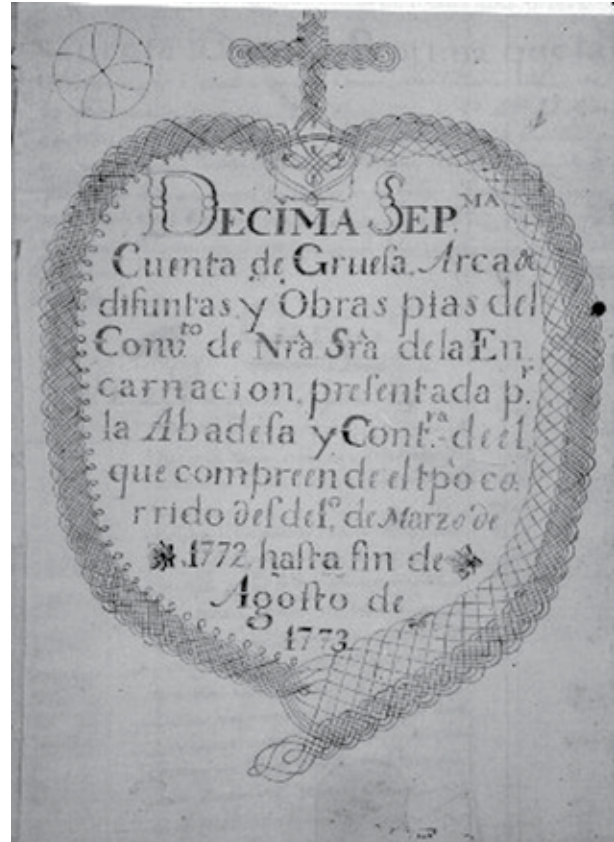 DECIMA SEP.MA
Cuenta de Gruesa, Arca de
difuntas, y Obras pias del
Conv.to de Nrã. Srã. de la En-
carnacion, presentada p.r
la Abadesa y Cont.ra de el,
que compreende el tpo co-
rrido desde 1.o de Marzo de
1772. hasta fin de
Agosto de
1773